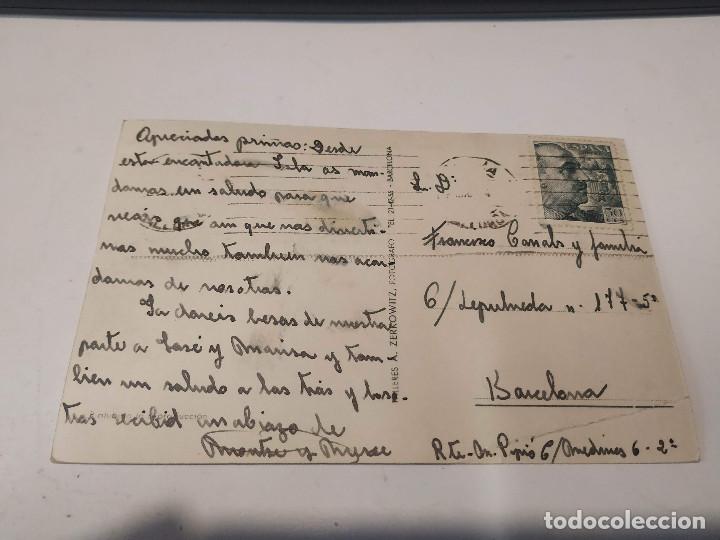 Apreciadas primas: Desde
esta encantadora Isla os man-
damos un saludo para que
veais, que aun que nos diverti-
mos mucho tambien nos acor
damos de vosotras.
Ya dareis besos de nuestra
parte a José y Marisa y tam-
bien un saludo a los tios y voso
tras recibid un abrazo de
Montse y Merse
TALLERES A. ZERKOWITZ, FOTOGRAFO TEL. 21-4355 - BARCELONA
ESPAÑA
50
S. D:
Francisco Canals y familia
C/ Sepulveda n. 177-5º
Barcelona
Rte- An. Pipió C/ Medines 6-2º
todocoleccion
todocoleccion.net